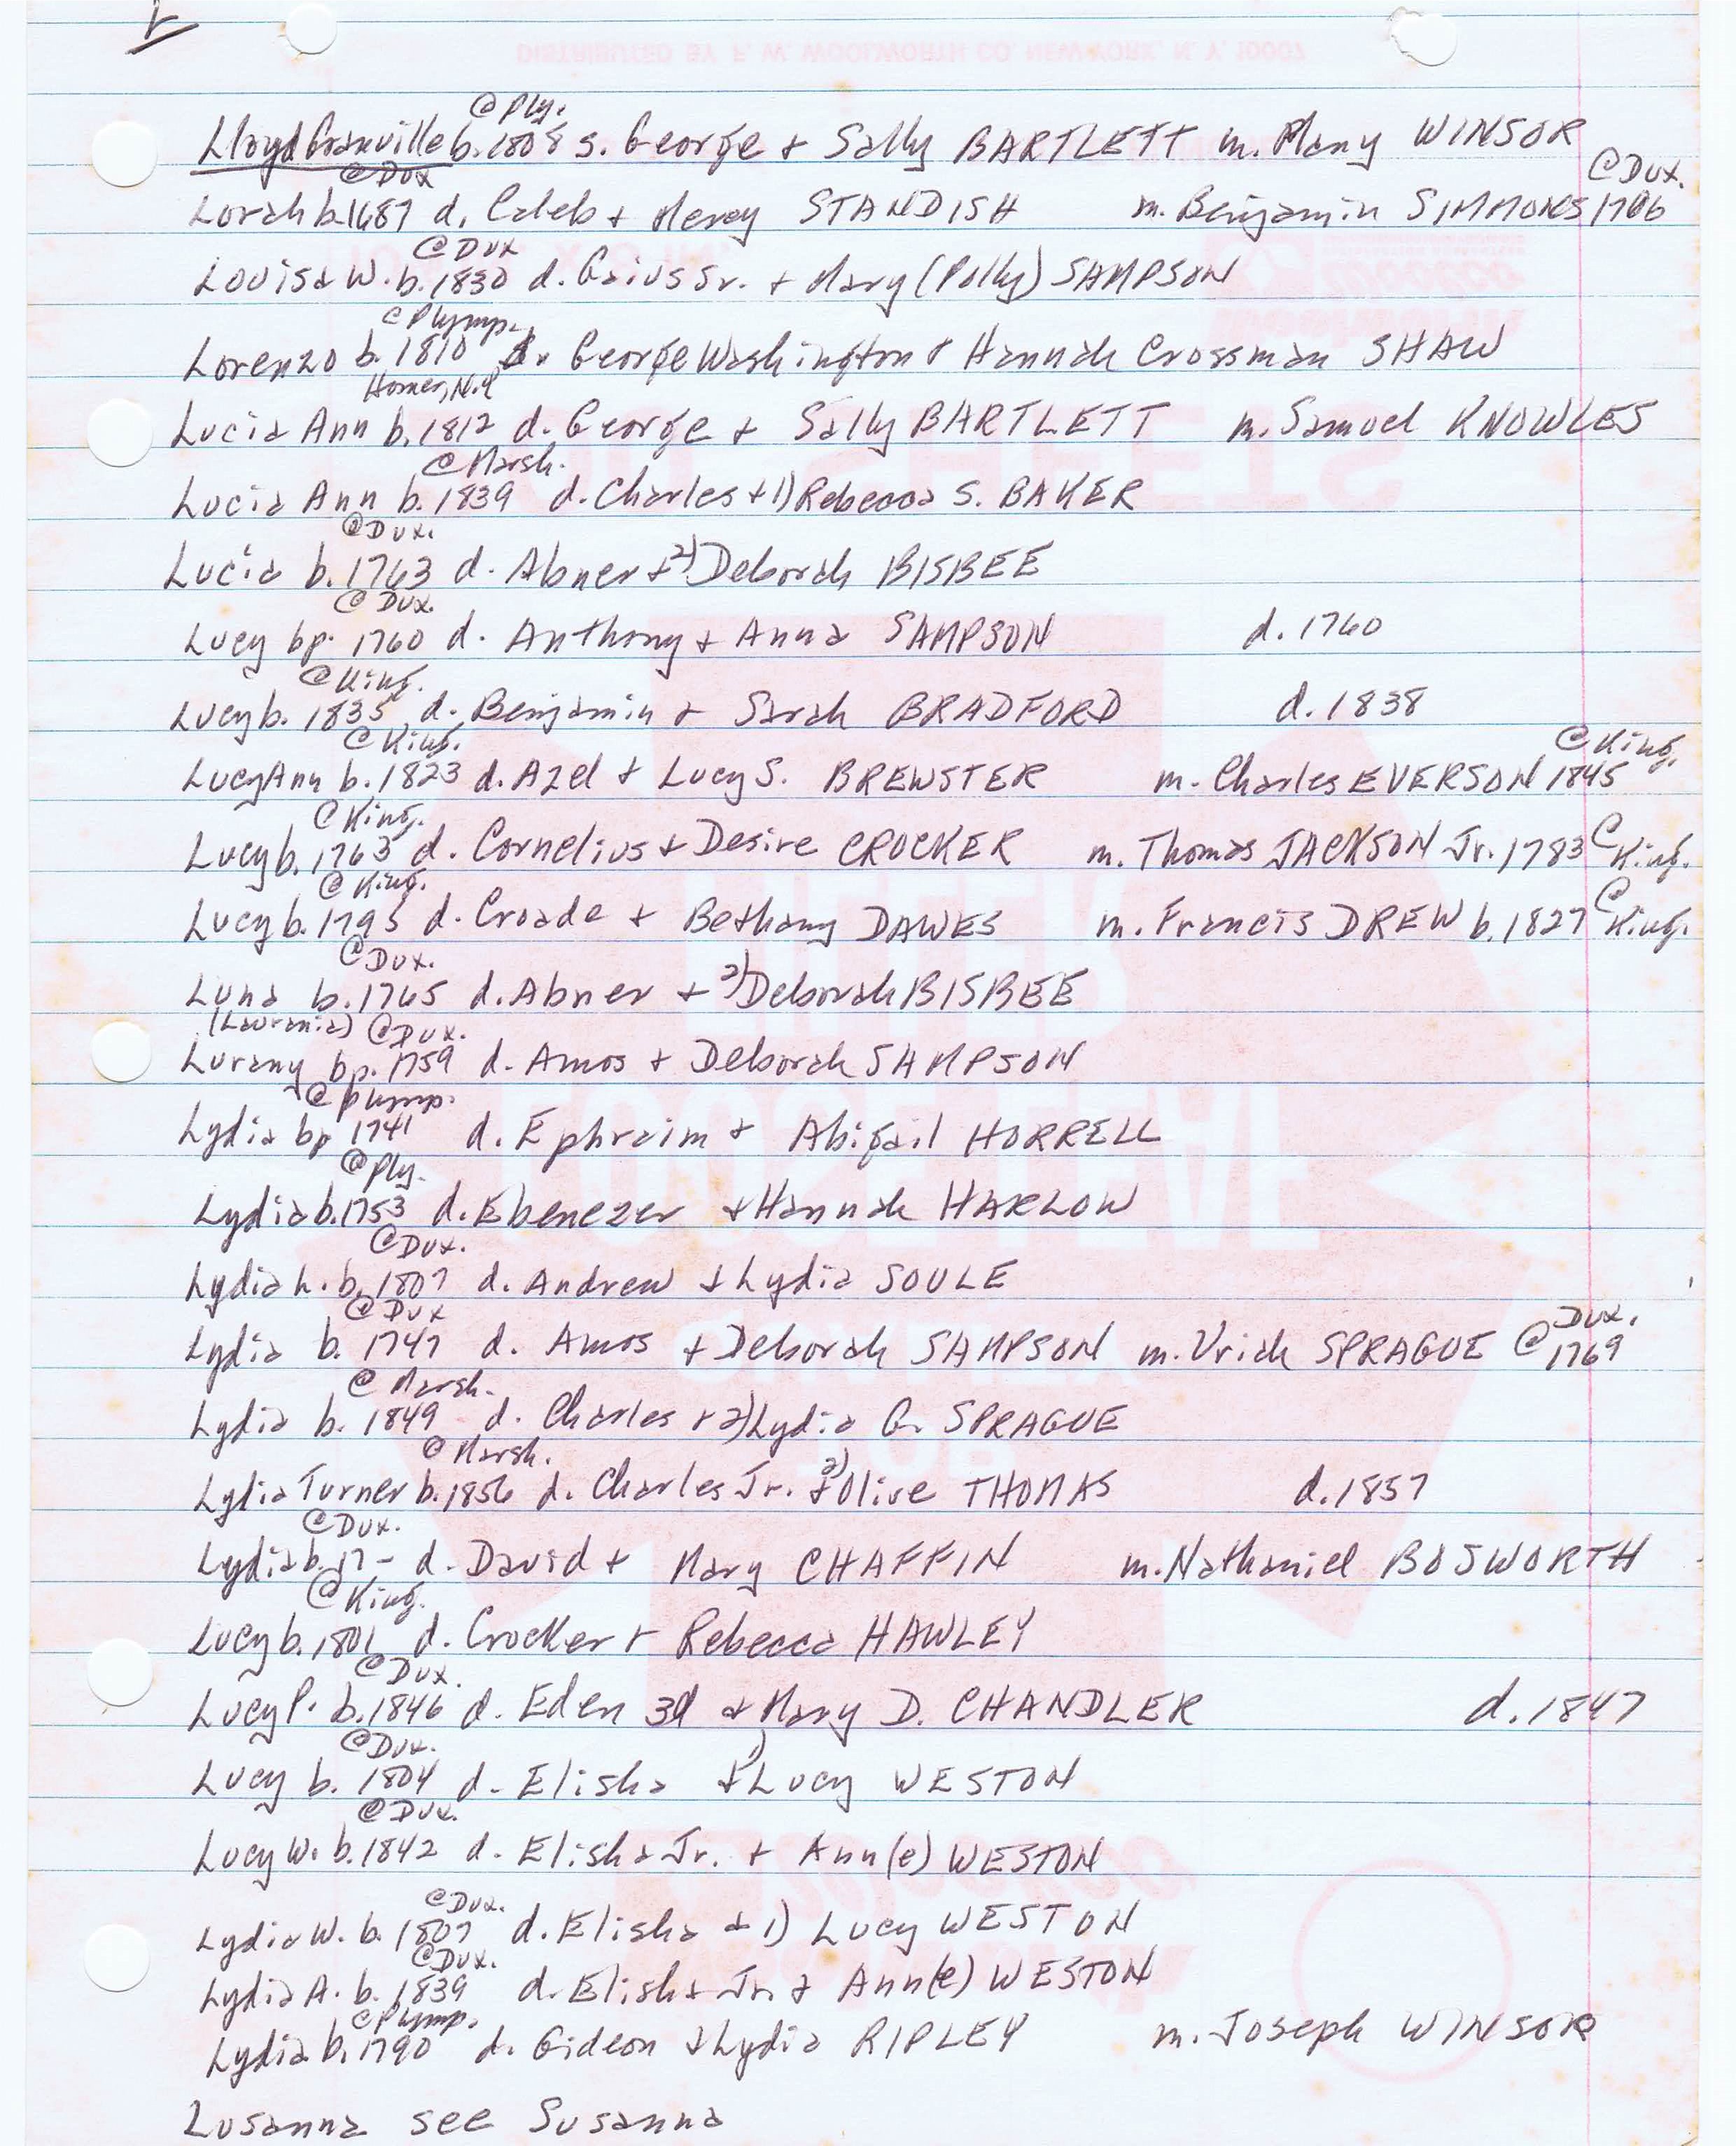 L
DISTRIBUTED BY F. W. WOOLWORTH CO. NEW YORK, N. Y. 10007
@ Ply.
Lloyd Granville b. 1808 s. George + Sally BARTLETT m. Mary WINSOR
@Dux @Dux.
Lorah b. 1687 d. Caleb + Mercy STANDISH m. Benjamin SIMMONS 1706
@Dux
Louisa W. b. 1830 d. Gaius Sr. + Mary (Polly) SAMPSON
@Plymp.
Lorenzo b. 1810 s. George Washington + Hannah Crossman SHAW
Homer, N.Y
Lucia Ann b. 1812 d. George + Sally BARTLETT m. Samuel KNOWLES
@Marsh.
Lucia Ann b. 1839 d. Charles + 1) Rebecca S. BAKER
@Dux.
Lucia b. 1763 d. Abner + 2) Deborah BISBEE
@ Dux.
Lucy bp. 1760 d. Anthony + Anna SAMPSON d. 1760
@King.
Lucy b. 1835 d. Benjamin + Sarah BRADFORD d. 1838
@King. @King.
Lucy Ann b. 1823 d. Azel + Lucy S. BREWSTER m. Charles EVERSON 1845
@King.
Lucy b. 1763 d. Cornelius + Desire CROCKER m. Thomas JACKSON Jr. 1783 @King.
@King.
Lucy b. 1795 d. Croade + Bethany DAWES m. Francis DREW b. 1827 @King.
@Dux.
Luna b. 1765 d. Abner + 2) Deborah BISBEE
(Laurania) @Dux.
Lurany bp. 1759 d. Amos + Deborah SAMPSON
@Plymp.
Lydia bp 1741 d. Ephraim + Abigail HORRELL
@Ply.
Lydia b. 1753 d. Ebenezer + Hannah HARLOW
@Dux.
Lydia L. b. 1807 d. Andrew + Lydia SOULE
@Dux Dux.
Lydia b. 1747 d. Amos + Deborah SAMPSON m. Uriah SPRAGUE @ 1769
@ Marsh.
Lydia b. 1849 d. Charles + 2) Lydia G. SPRAGUE
@Marsh.
Lydia Turner b. 1856 d. Charles Jr. + 2) Olive THOMAS d. 1857
@Dux.
Lydia b. 17- d. David + Mary CHAFFIN m. Nathaniel BOSWORTH
@King.
Lucy b. 1801 d. Crocker + Rebecca HAWLEY
@Dux.
Lucy P. b. 1846 d. Eden 3d + Mary D. CHANDLER d. 1847
@Dux.
Lucy b. 1804 d. Elisha + 1) Lucy WESTON
@Dux.
Lucy W. b. 1842 d. Elisha Jr. + Ann(e) WESTON
@Dux.
Lydia W. b. 1807 d. Elisha + 1) Lucy WESTON
@Dux.
Lydia A. b. 1839 d. Elisha Jr. + Ann(e) WESTON
@Plymp.
Lydia b. 1790 d. Gideon + Lydia RIPLEY m. Joseph WINSOR
Lusanna see Susanna